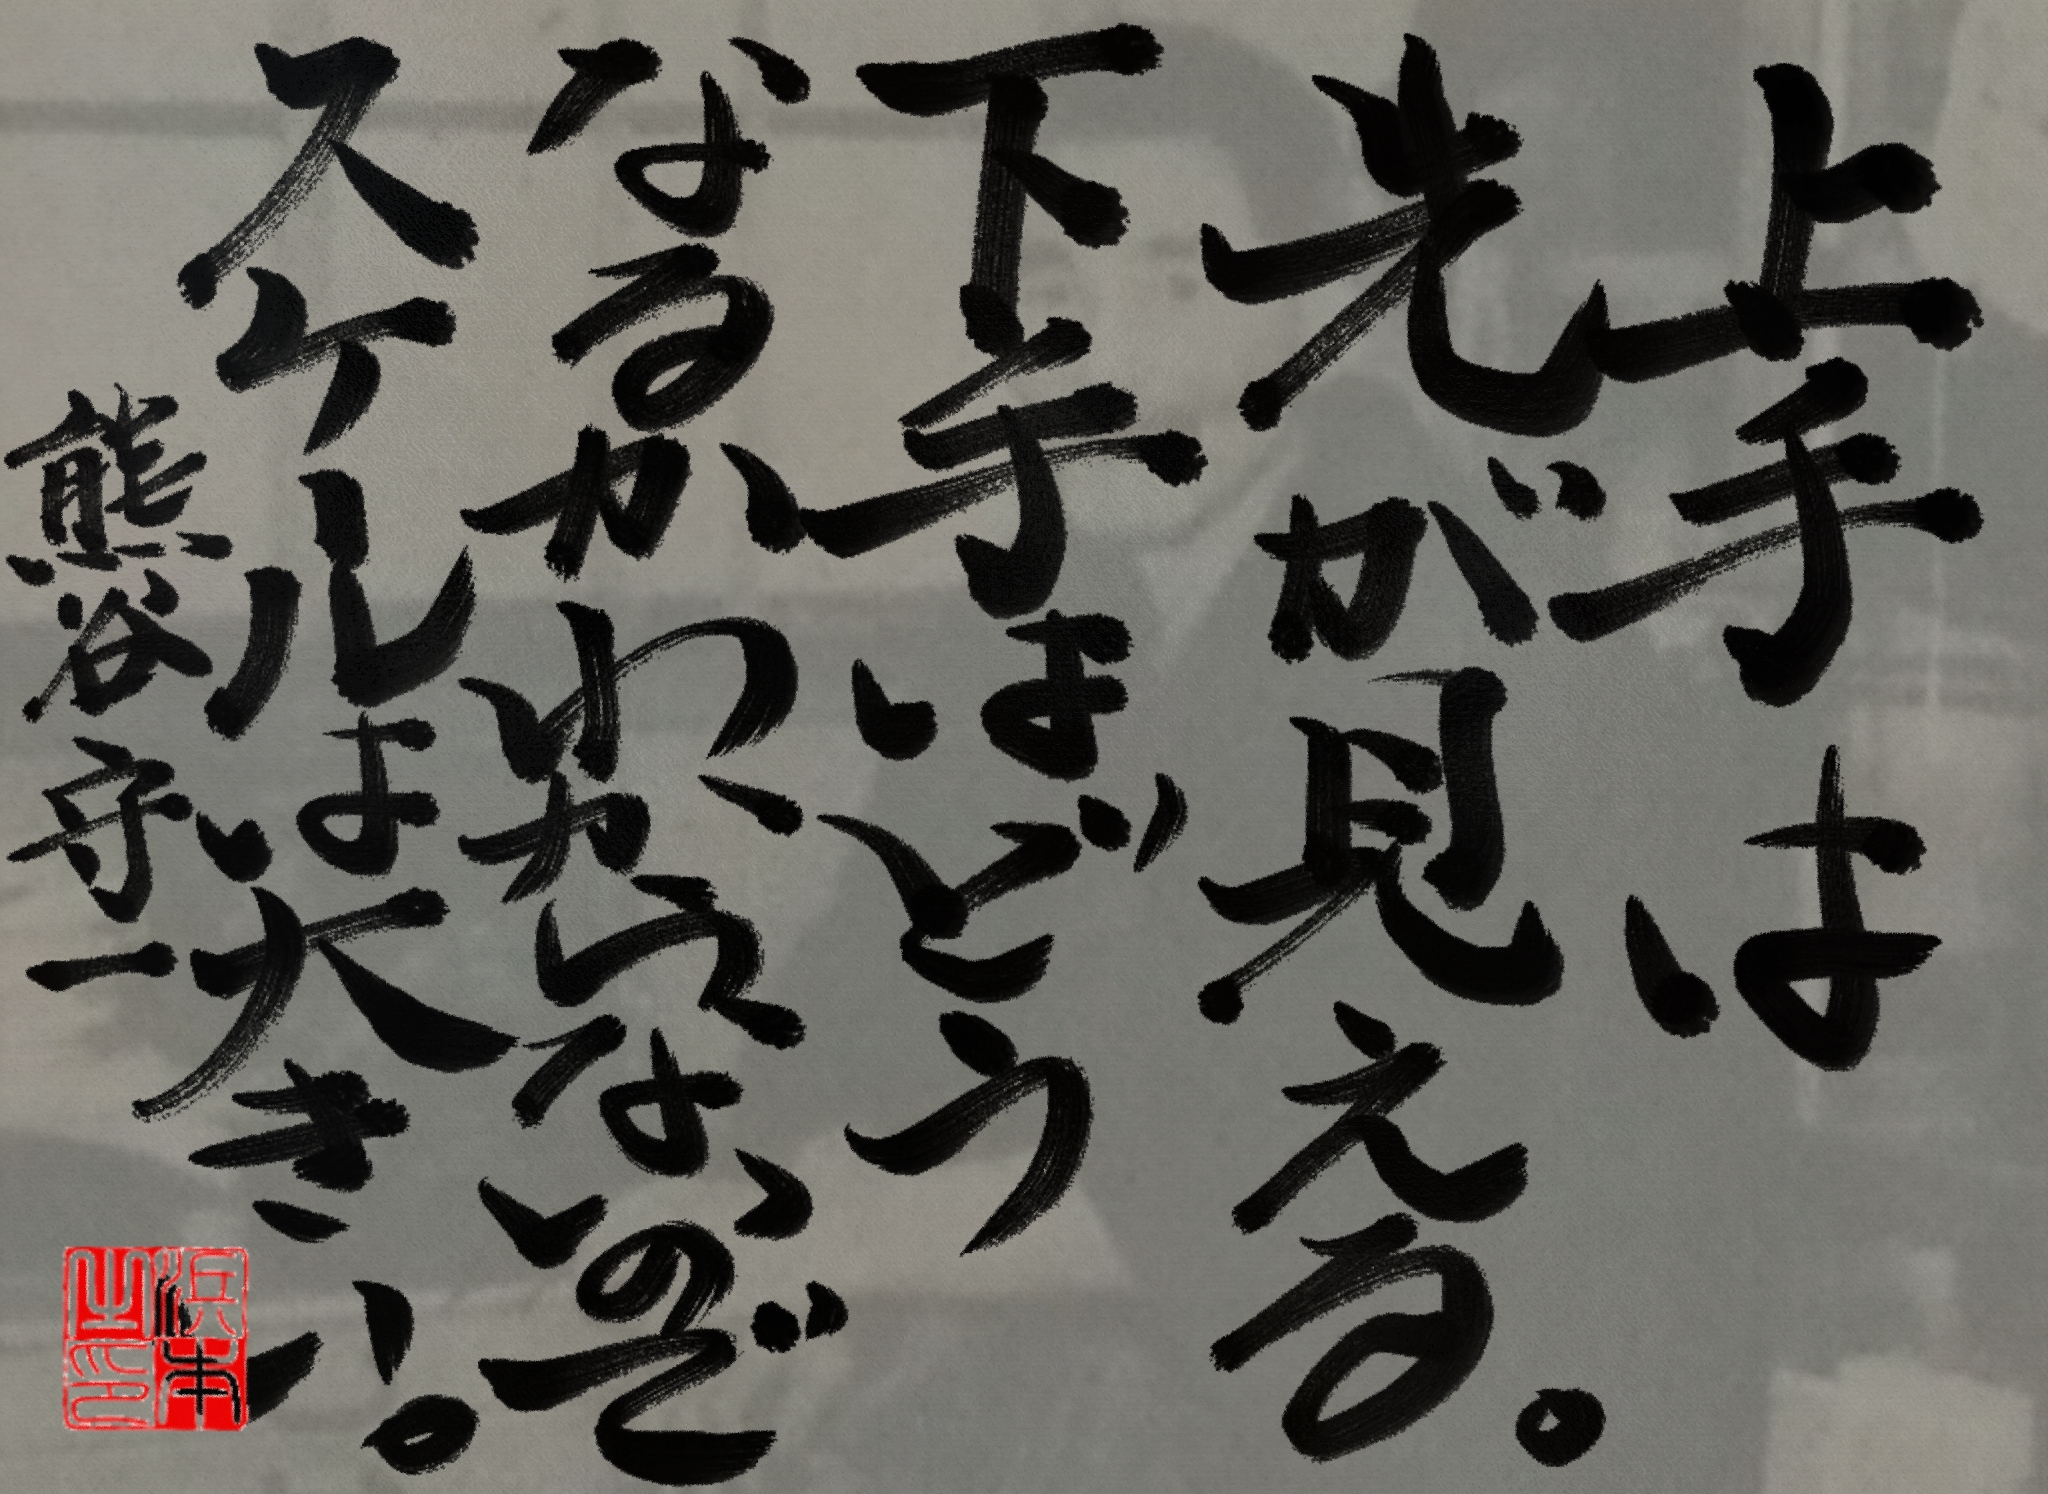 上手は
先が見える。
下手はどう
なるか
わからないので
スケールは大きい。
熊谷守一
浜本
之印